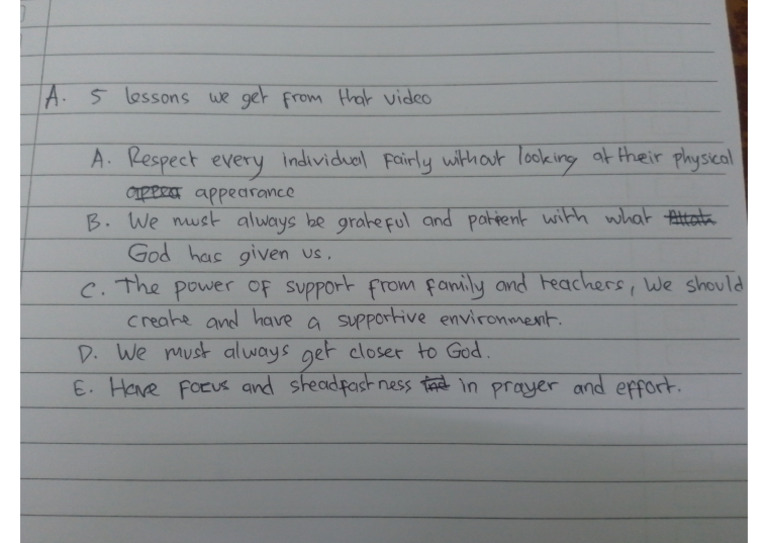 A. 5 lessons we get from that video
A. Respect every individual fairly without looking at their physical
appearance
B. We must always be grateful and patient with what
God has given us.
C. The power of support from family and teachers, we should
create and have a supportive environment.
D. We must always get closer to God.
E. Have focus and steadfastness in prayer and effort.